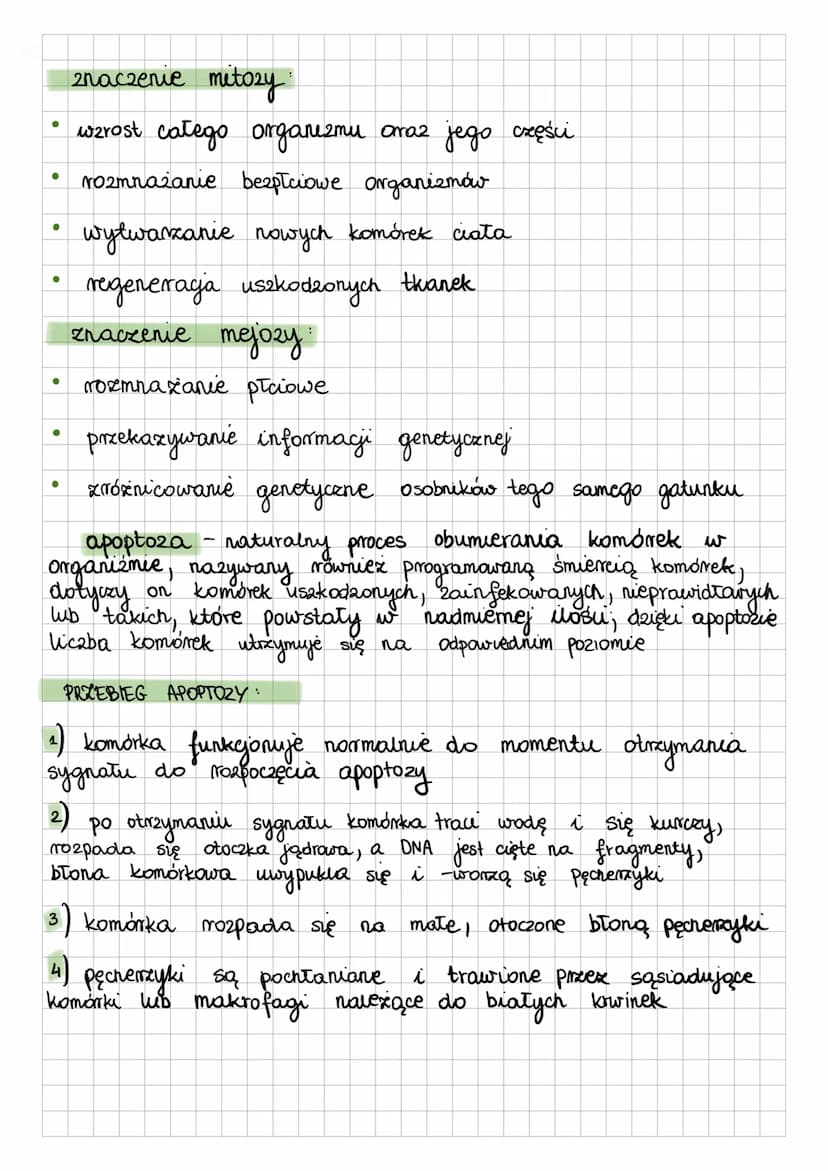 znaczenie mitozy:
• wzrost całego organizmu oraz jego części
• rozmnażanie bezpłciowe organizmów
• wytwarzanie nowych komórek ciała
• regeneracja uszkodzonych tkanek
znaczenie mejozy:
• rozmnażanie płciowe
• przekazywanie informacji genetycznej
• zróżnicowanie genetyczne osobników tego samego gatunku
apoptoza - naturalny proces obumierania komórek w
organiźmie, nazywany również programowaną śmiercią komórek,
dotyczy on komórek uszkodzonych, zainfekowanych, nieprawidłowych
lub takich, które powstały w nadmiernej ilości; dzięki apoptozie
liczba komórek utrzymuje się na odpowiednim poziomie
PRZEBIEG APOPTOZY:
1) komórka funkcjonuje normalnie do momentu otrzymania
sygnału do rozpoczęcia apoptozy
2) po otrzymaniu sygnału komórka traci wodę i się kurczy,
rozpada się otoczka jądrowa, a DNA jest cięte na fragmenty,
błona komórkowa uwypukla się i tworzą się pęcherzyki
3) komórka rozpada się na małe, otoczone błoną pęcherzyki
4) pęcherzyki są pochłaniane i trawione przez sąsiadujące
komórki lub makrofagi należące do białych krwinek